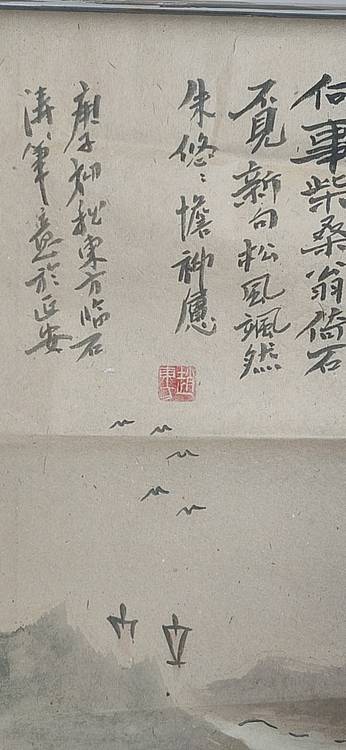 何事柴桑翁倚石
不見新句松風颯然
朱悠々憺神慮
庚子初秋東方臨石
濤筆意於延安